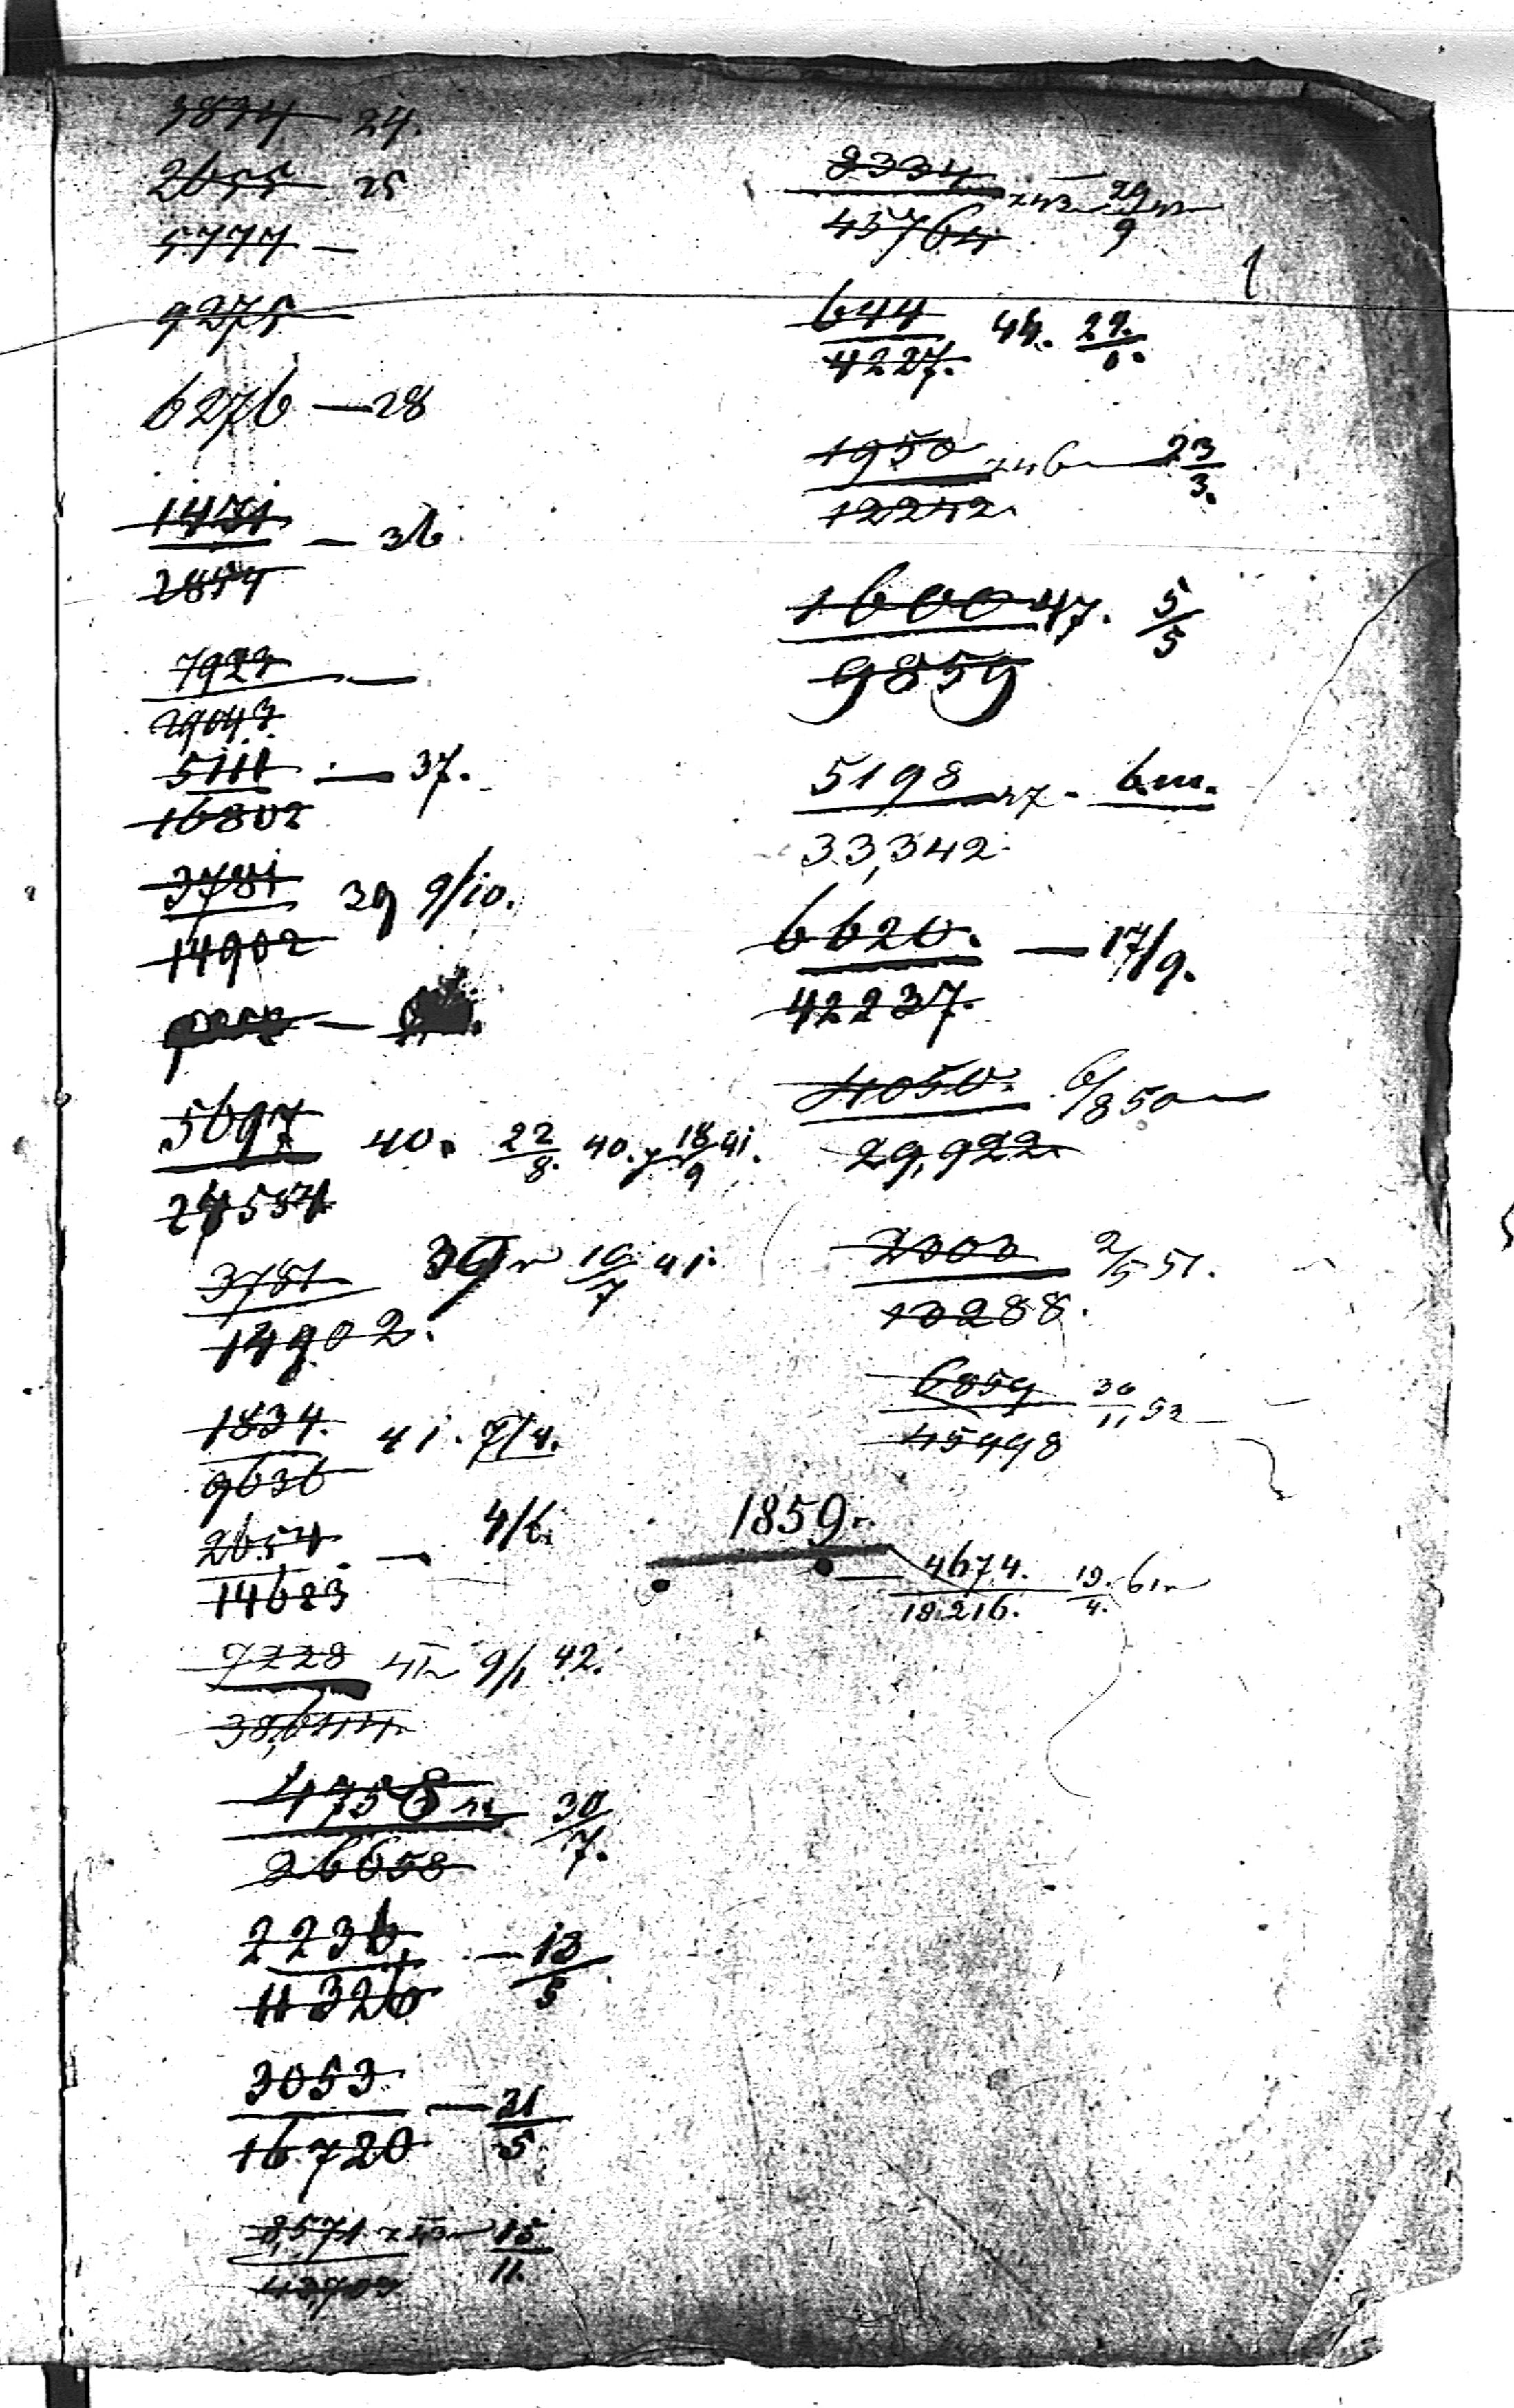 3834 24.
2655 25
5777 —
9275
6276 — 28
1471 — 36
2854
7923 —
29043
5111 — 37.
16802
3781 39 9/10.
14902
5697 40. 22/8. 40. 18/9 41.
24554
3781 39 10/7 41.
14902.
1834. 41. 7/4.
9636
2654. — 4/6.
14623
7228 9/1 42.
4758 30/7.
26658
2236. — 13/5
11326
3053 — 21/5
16720
8,571 15/11.
8334 29/9
45764
644 44. 29./1.
4227.
1950 46 23/3.
12242.
1600 47. 5/5
9859
5198 47.
33,342
6620. — 17/9.
42237.
4050. 6/8 50
29,922
2303 2/5 51.
13288.
6859 30/11, 52
45498
1859
4674. 19./4. 61
18216.